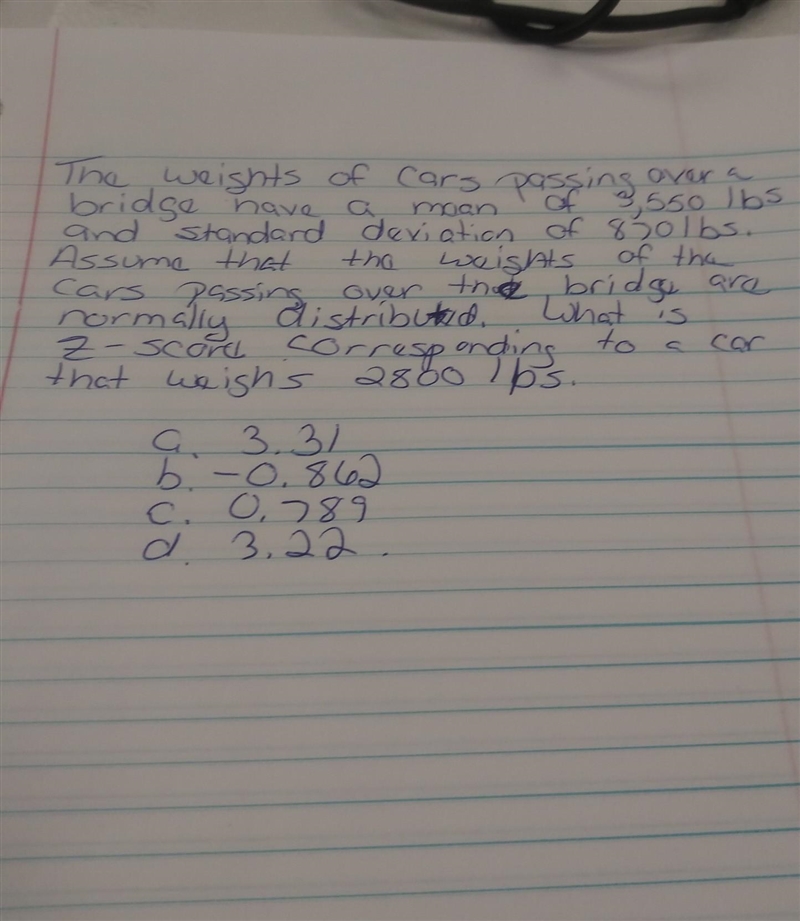 The weights of cars passing over a
bridge have a mean of 3,550 lbs
and standard deviation of 870 lbs.
Assume that the weights of the
cars passing over the bridge are
normally distributed. What is
Z-score corresponding to a car
that weighs 2800 lbs.
a. 3.31
b. -0.862
c. 0.789
d. 3.22.